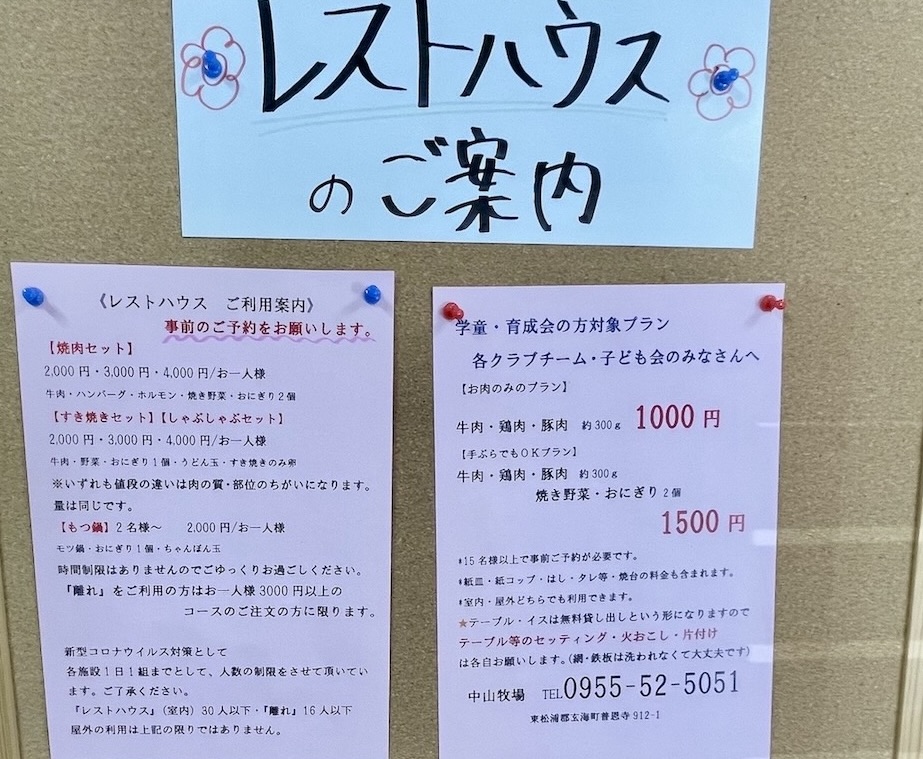 レストハウス
のご案内
《レストハウス ご利用案内》
事前のご予約をお願いします。
【焼肉セット】
2,000円・3,000円・4,000円/お一人様
牛肉・ハンバーグ・ホルモン・焼き野菜・おにぎり2個
【すき焼きセット】【しゃぶしゃぶセット】
2,000円・3,000円・4,000円/お一人様
牛肉・野菜・おにぎり1個・うどん玉・すき焼きのみ卵
※いずれも値段の違いは肉の質・部位のちがいになります。
量は同じです。
【もつ鍋】2名様～ 2,000円/お一人様
モツ鍋・おにぎり1個・ちゃんぽん玉
時間制限はありませんのでごゆっくりお過ごしください。
『離れ』をご利用の方はお一人様3000円以上の
コースのご注文の方に限ります。
新型コロナウイルス対策として
各施設1日1組までとして、人数の制限をさせて頂いてい
ます。ご了承ください。
『レストハウス』(室内) 30人以下・『離れ』16人以下
屋外の利用は上記の限りではありません。
学童・育成会の方対象プラン
各クラブチーム・子ども会のみなさんへ
【お肉のみのプラン】
牛肉・鶏肉・豚肉 約300g 1000円
【手ぶらでもOKプラン】
牛肉・鶏肉・豚肉 約300g
焼き野菜・おにぎり2個
1500円
*15名様以上で事前ご予約が必要です。
*紙皿・紙コップ・はし・タレ等・焼台の料金も含まれます。
*室内・屋外どちらでも利用できます。
★テーブル・イスは無料貸し出しという形になりますので
テーブル等のセッティング・火おこし・片付け
は各自お願いします。(網・鉄板は洗われなくて大丈夫です)
中山牧場 TEL0955-52-5051
東松浦郡玄海町普恩寺912-1